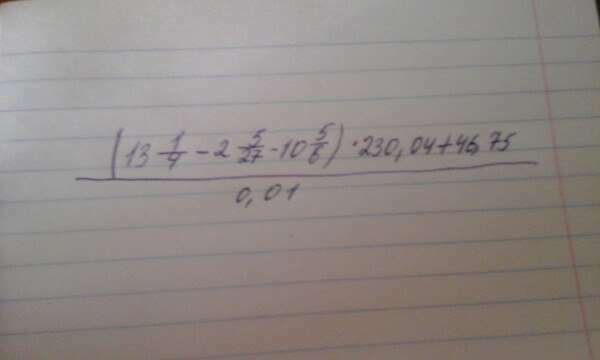 (13 1/4 - 2 5/27 - 10 5/6) · 230,04 + 46,75
0,01